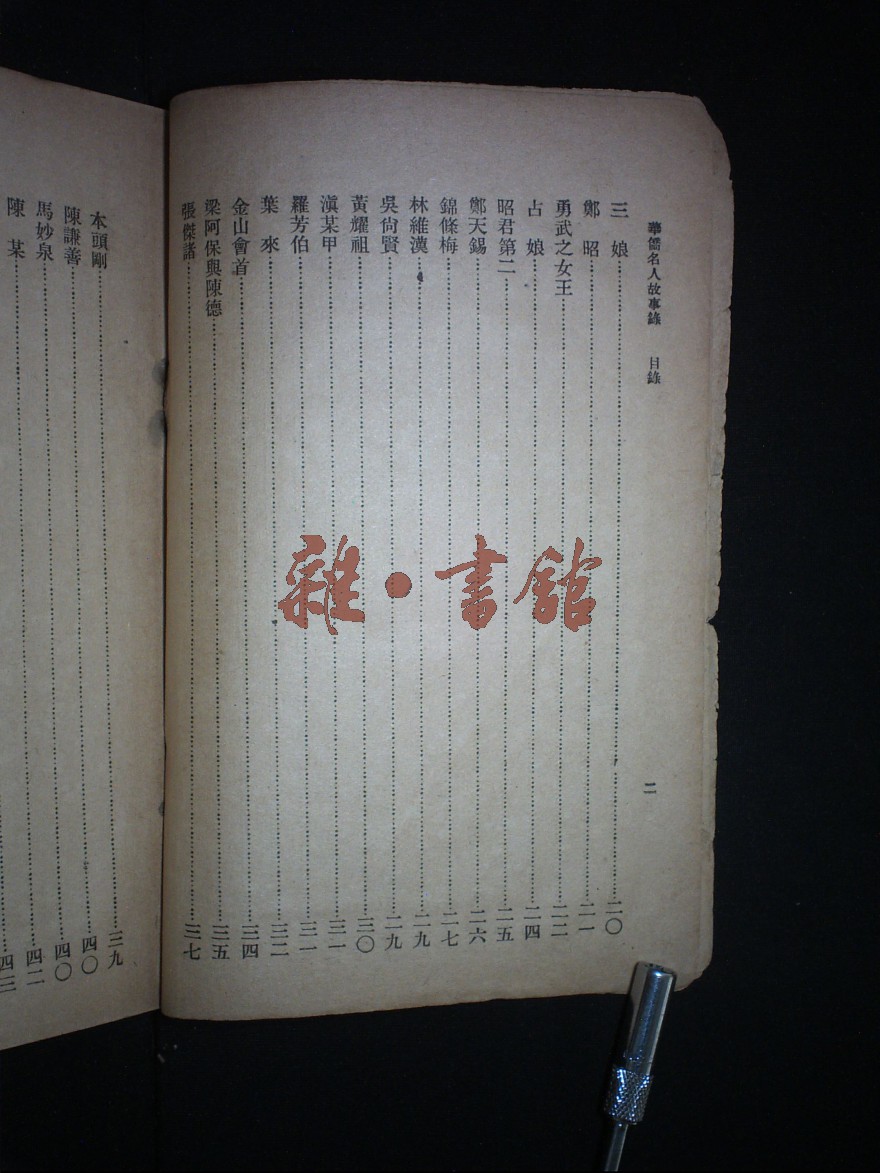 華僑名人故事錄 目錄 二
三娘……二〇
鄭昭……二一
勇武之女王……二二
占娘……二四
昭君第二……二五
鄭天錫……二六
錦條梅……二七
林維漢……二九
吳尙賢……二九
黃耀祖……三〇
滇某甲……三一
羅芳伯……三一
葉來……三二
金山會首……三四
梁阿保與陳德……三五
張傑諸……三七
本頭剛……三九
陳謙善……四〇
馬妙泉……四〇
陳某……四二
四三
雜·書館